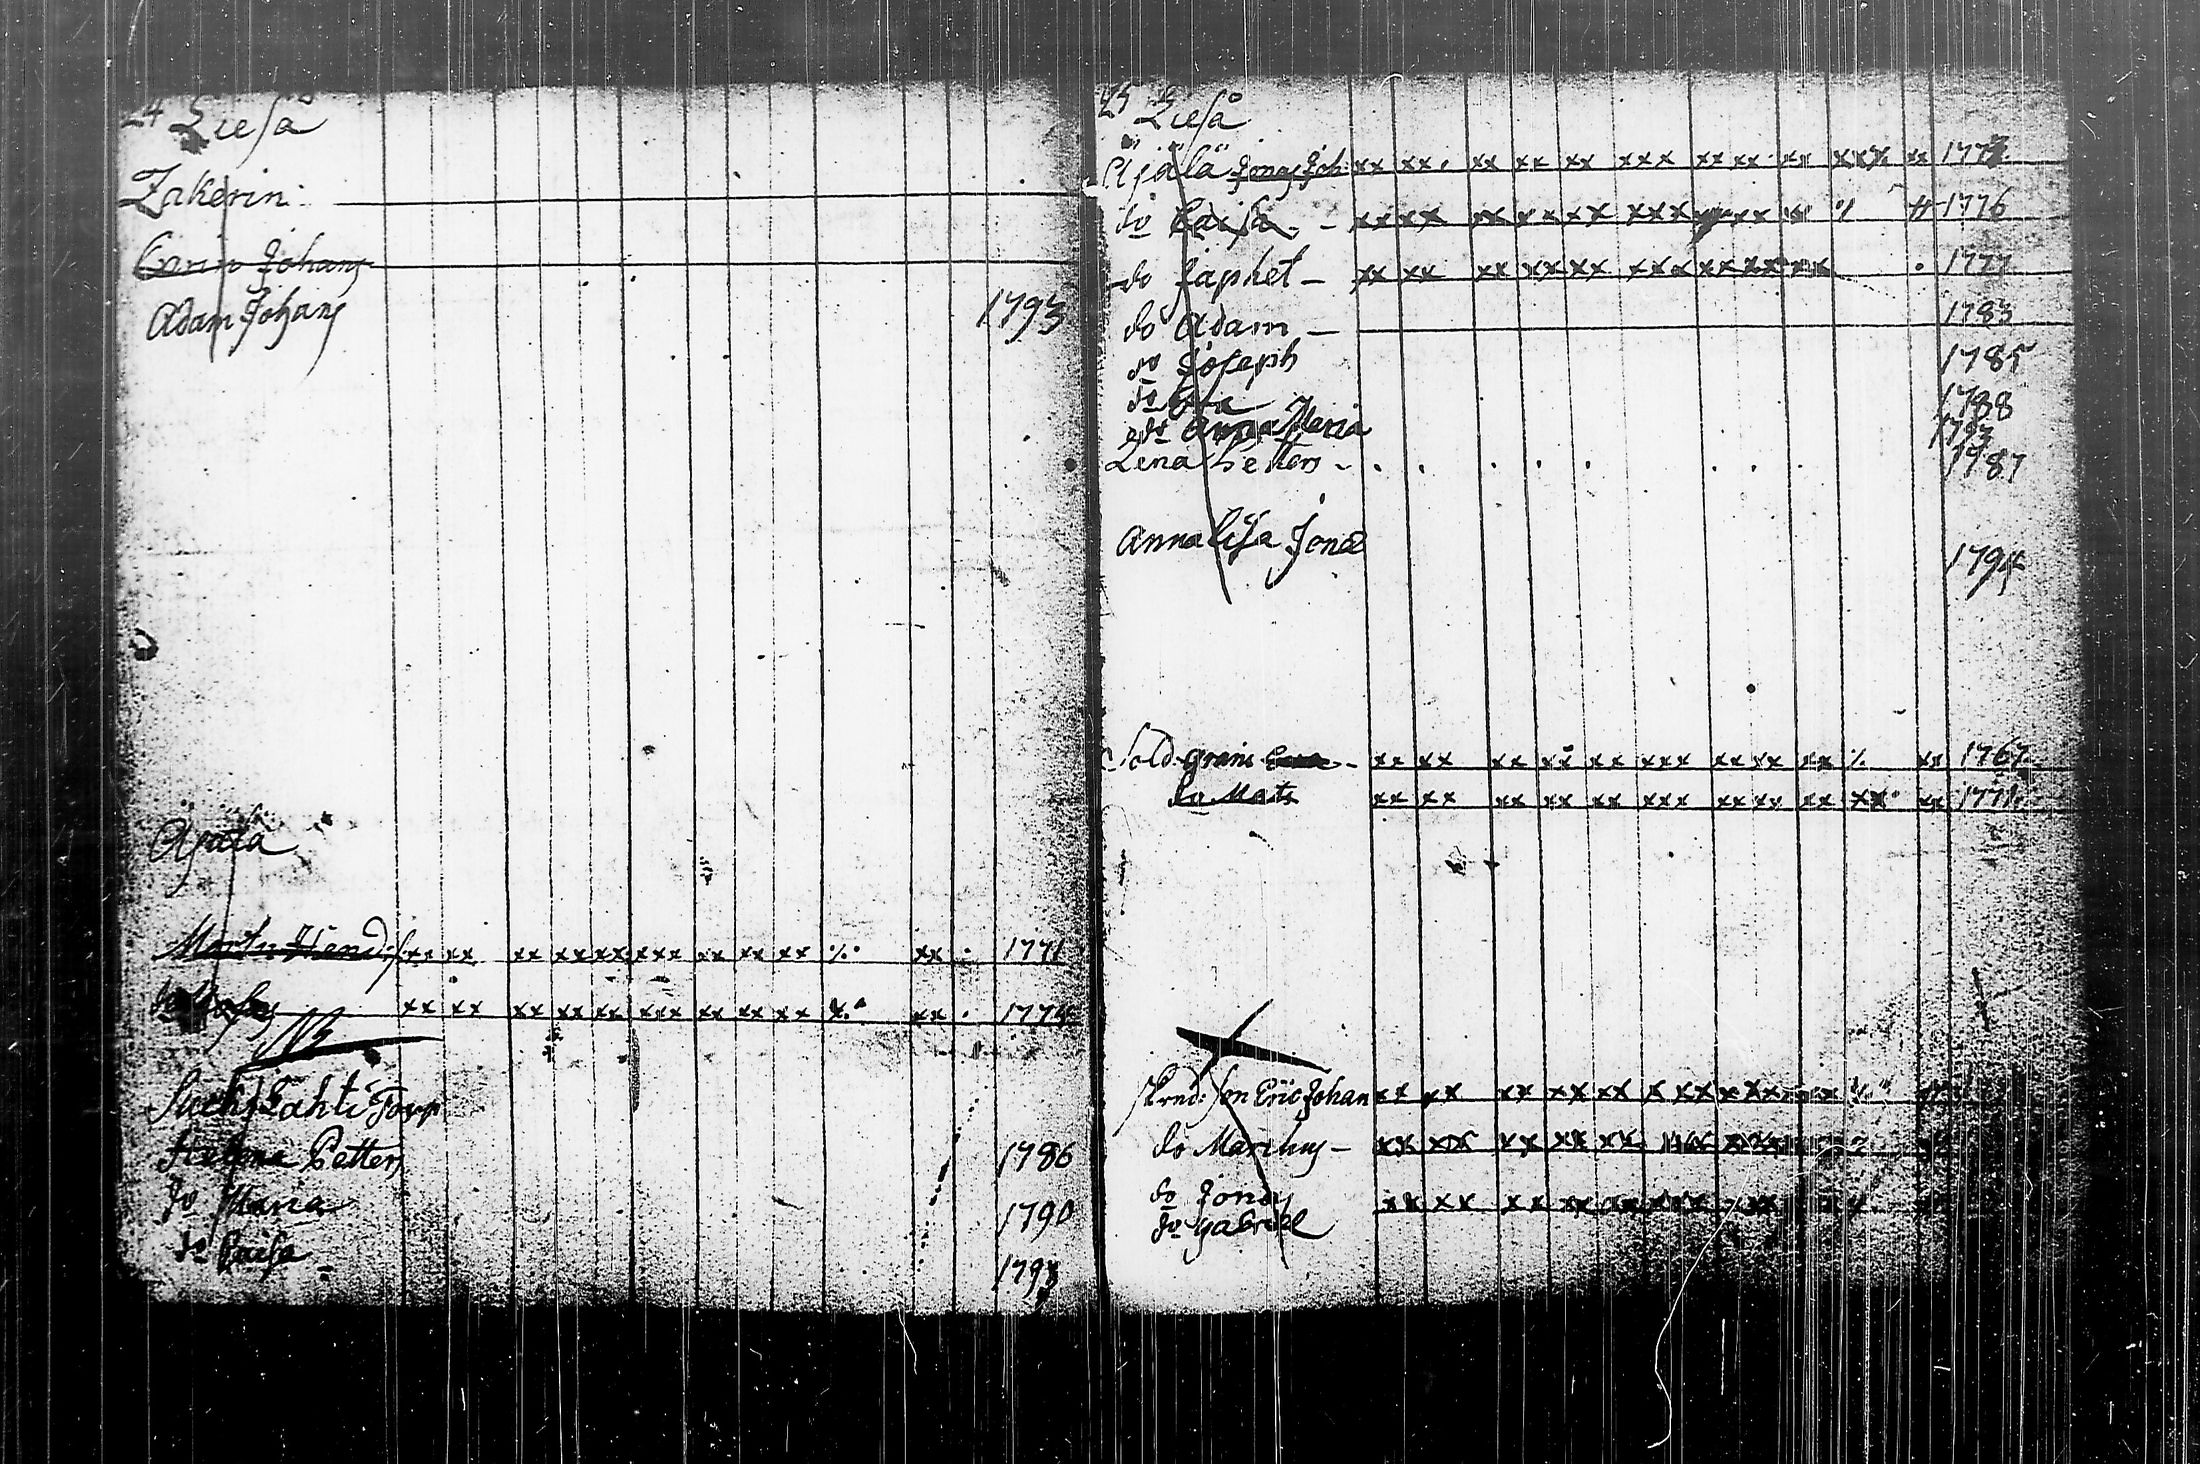 24 Lieså
Zakerin
Carin Johans
Adam Johans 1793
Äjälä
Martin Hends xx xx xx xx xx xxx xx xx xx ·/· xx · 1771
do xx xx xx xx xx xxx xx xx xx xx · 1774
Lahti Torp
Helena Petters 1786
do Maria 1790
do Caisa 1793
25 Lieså
Äjälä Jonas Joh: xx xx. xx xx xx xxx xx xx xx xxx xx 1773
do Caisa - 1776
do Japhet - xx xx xx xx xx xxx xx xx xx · 1777
do Adam - 1783
do Joseph 1785
do Eva 1788
do Anna Maria 1793
Lena Petters - . . . . . . . . 1787
Anna Lisa Jonæ 1794
Sold. Grans - xx xx xx xx xx xxx xx xx xx ·/. xx 1767
do Mats xx xx xx xx xx xxx xx xx xx xx xx 1771
Son Eric Johan xx xx xx xx xx x xx
do Marcus - xx xx xx xx xx
do Jonas xx xx xx xx
do Gabriel